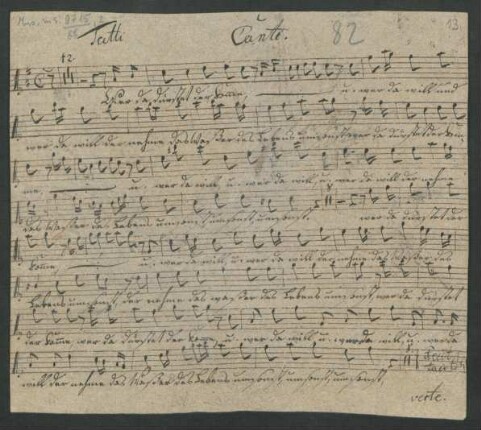 Tutti Canto. 82 13.
12
Wer da dürstet der komme, u. wer da will und
wer da will der nehme das Wasser des Lebens umsonst wer da dürstet der kom
me u. wer da will u. wer da will u. wer da will der nehme
das Wasser des Lebens umsonst umsonst umsonst. wer da dürstet der
komme, u. wer da will u. wer da will der nehme das Wasser des
Lebens umsonst der nehme das Wasser des Lebens umsonst wer da dürstet
der komme wer da dürstet der komme u. wer da will u. wer da will u. wer da
will der nehme das Wasser des Lebens umsonst umsonst umsonst,
verte.